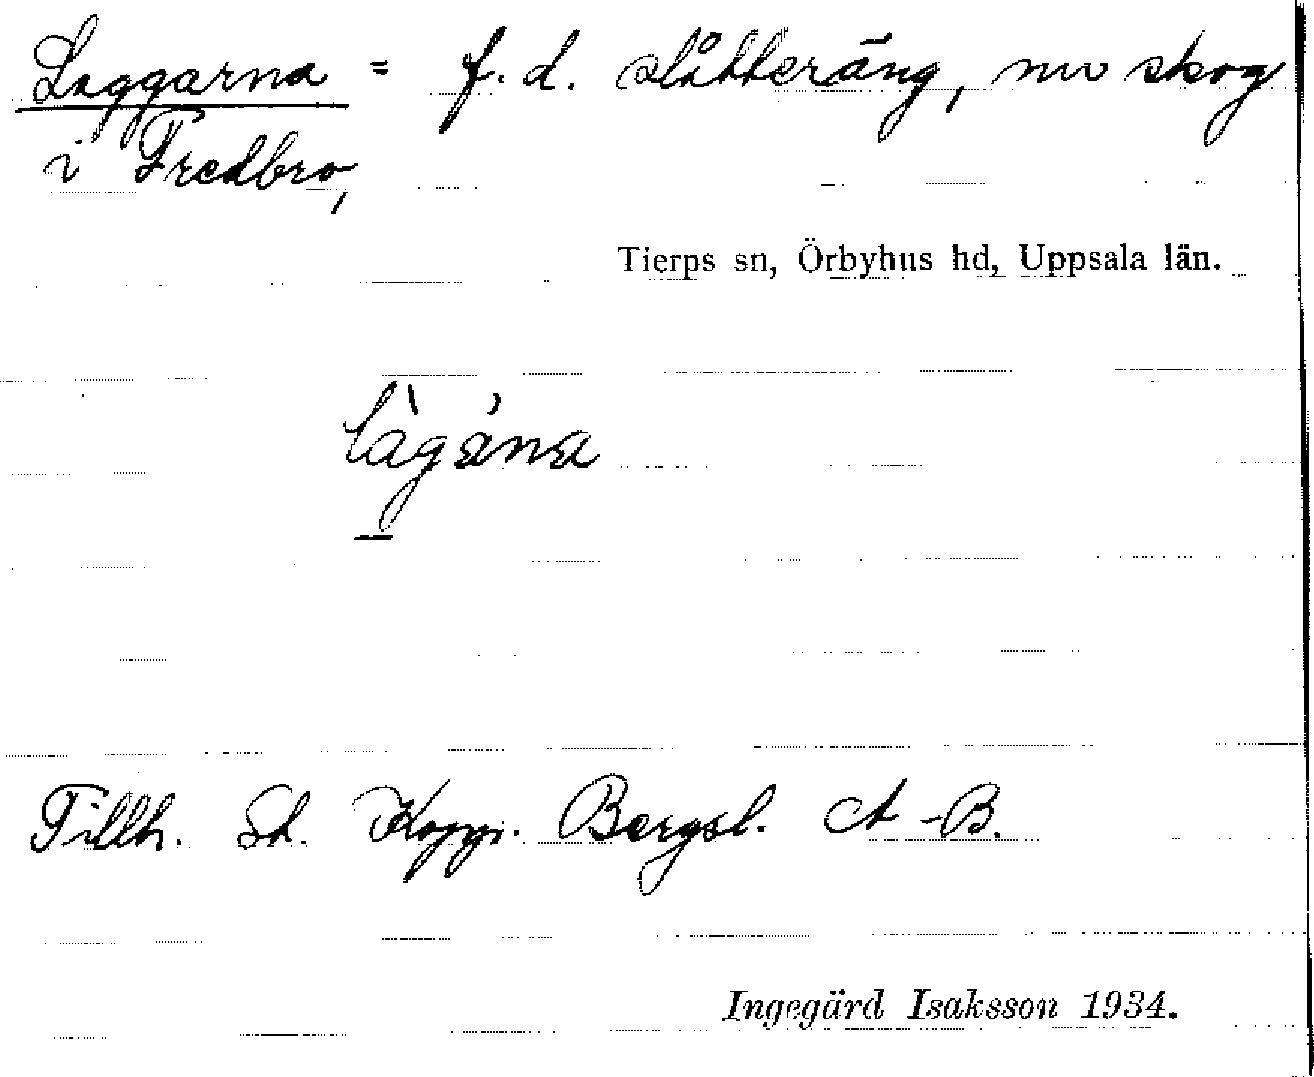 Laggarna = f. d. slåtteräng, nu skog
i Fredbro,
Tierps sn, Örbyhus hd, Uppsala län.
làgána
Tillh. St. Koppr. Bergsl. A-B.
Ingegärd Isaksson 1934.